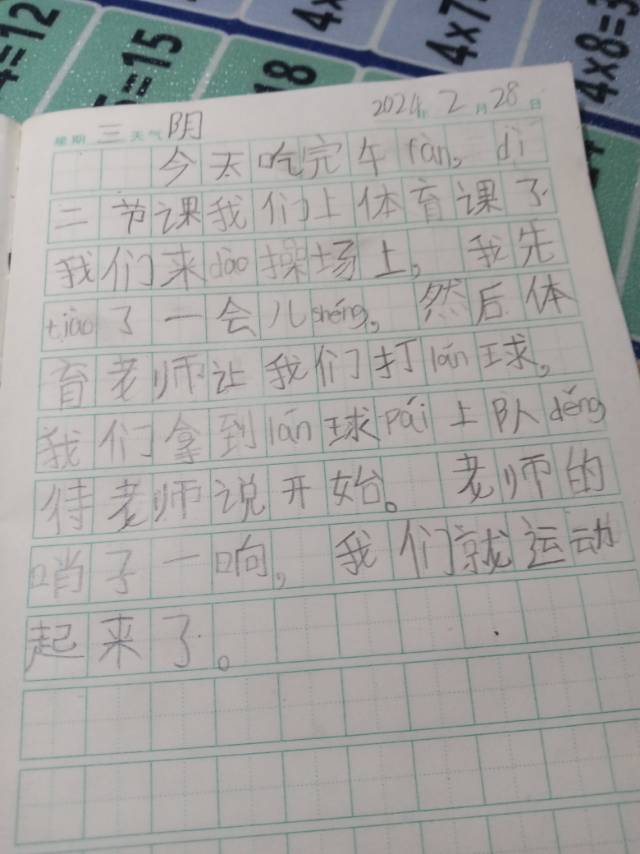 4=12
5=15
18
4×
4×7
4×8=3
星期 三 天气 阴 2024年 2月 28日
今天吃完午fàn,dì
二节课我们上体育课了.
我们来dào操场上,我先
tiào了一会儿shéng,然后体
育老师让我们打lán球,
我们拿到lán球pái上队děng
待老师说开始。老师的
哨子一响,我们就运动
起来了。